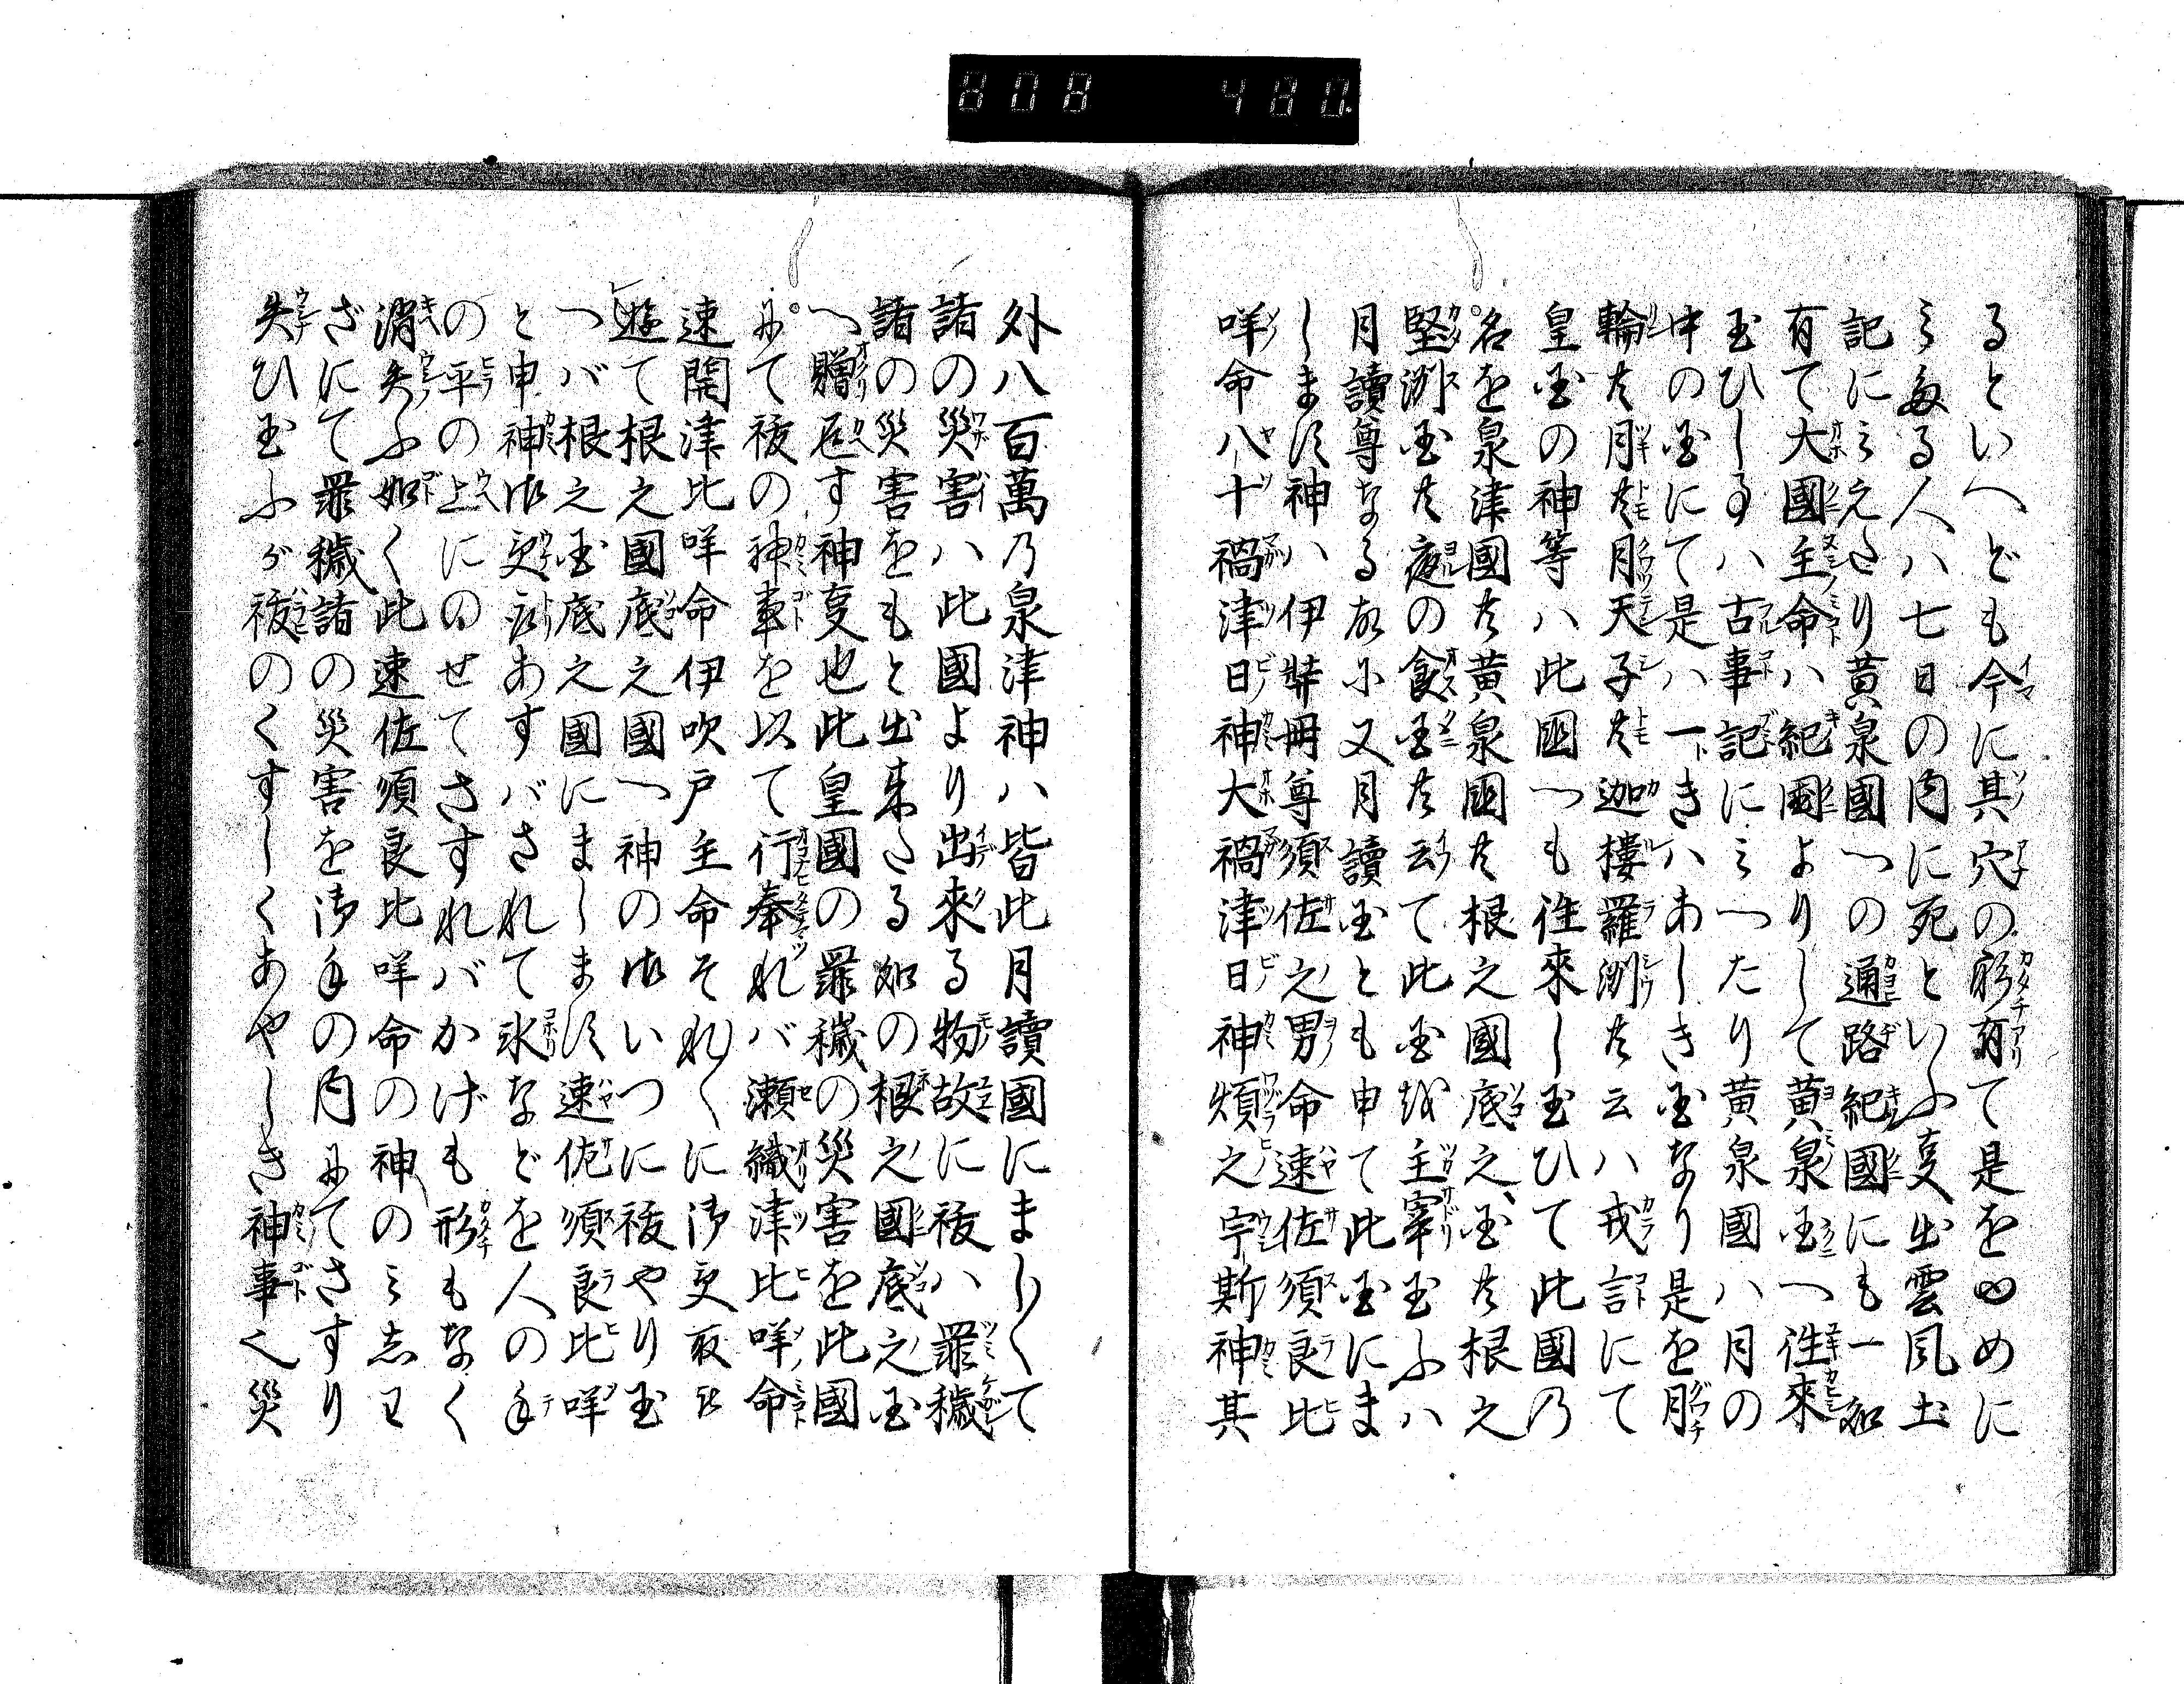 るといへども今に其穴の形有て是をゆめに
ミたる人ハ七日の内に死といふ叓出雲風土
記にミえたり黄泉國への通路紀國にも一如
有て大國主命ハ紀國よりして黄泉国へ往來
玉ひしるハ古事記にミへたり黄泉國ハ月の
中の国にて是ハ一きハあしき国なり是を月
輪共月共月天子共迦樓羅洲共云ハ戎言にて
皇国の神等ハ此國へも往來し玉ひて此國乃
名を泉津國共黄泉國共根之國底之国共根之
堅洲国共夜の食国共云て此国越主宰玉ふハ
月讀尊なる故に又月讀国とも申て此国にま
します神ハ伊弉冊尊須佐之男命速佐須良比
咩命八十禍津日神大禍津日神煩之宇斯神其
外八百萬乃泉津神ハ皆此月讀國にましくて
諸の災害ハ此國より出來る物故に祓ハ罪穢
諸の災害をもと出来たる如の根之國底之国
へ贈返す神叓也此皇國の罪穢の災害を此國
にて祓の神事を以て行奉れバ瀬織津比咩命
速開津比咩命伊吹戸主命それくに御受取
遊て根之國底之國へ神の御いつに祓やり玉
つバ根之国底之國にまします速佐須良比咩
と申神御受取あすバされて氷などを人の手
の平の上にのせてさすれバかげも形もなく
消失ふ如く此速佐須良比咩命の神のミ志わ
ざにて罪穢諸の災害を御手の内にてさすり
失ひ玉ふが祓のくすしくあやしき神事く災
808 480.